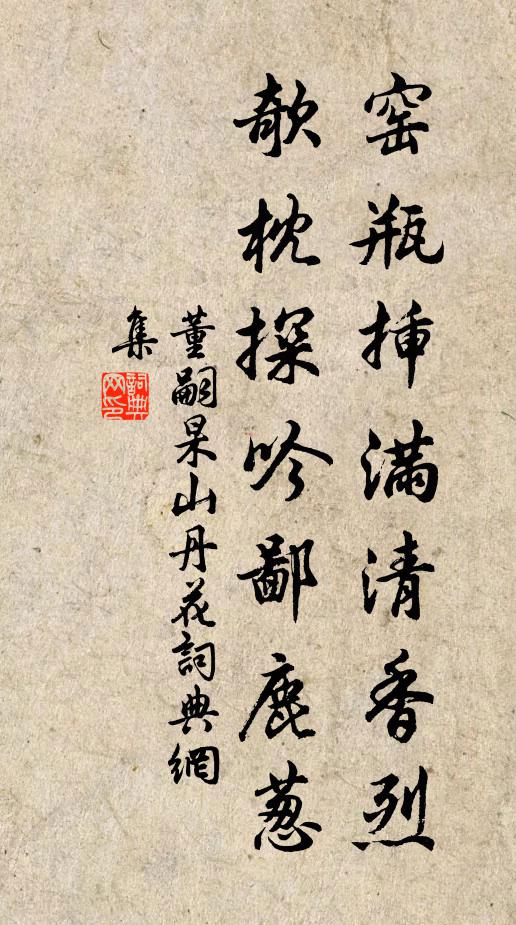 窑瓶插滿清香烈
欹枕探吟鄙鹿葱
董嗣杲山丹花詞典網
集
詞典
网印